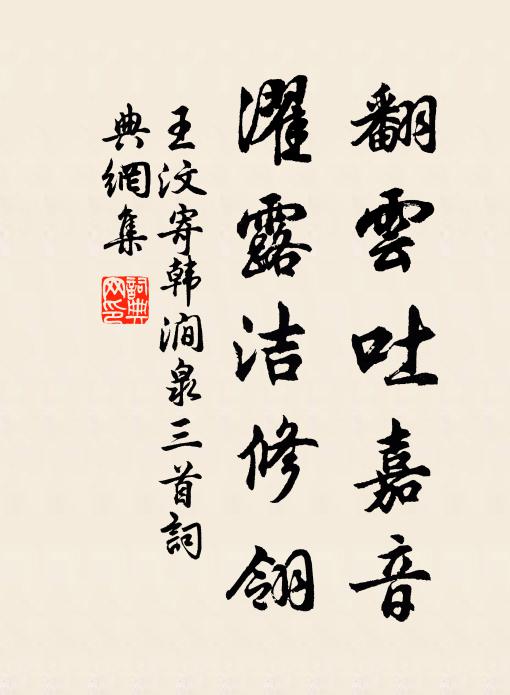 翻雲吐嘉音
濯露洁修翎
王汶寄韩涧泉三首詞
典網集
詞典
网印